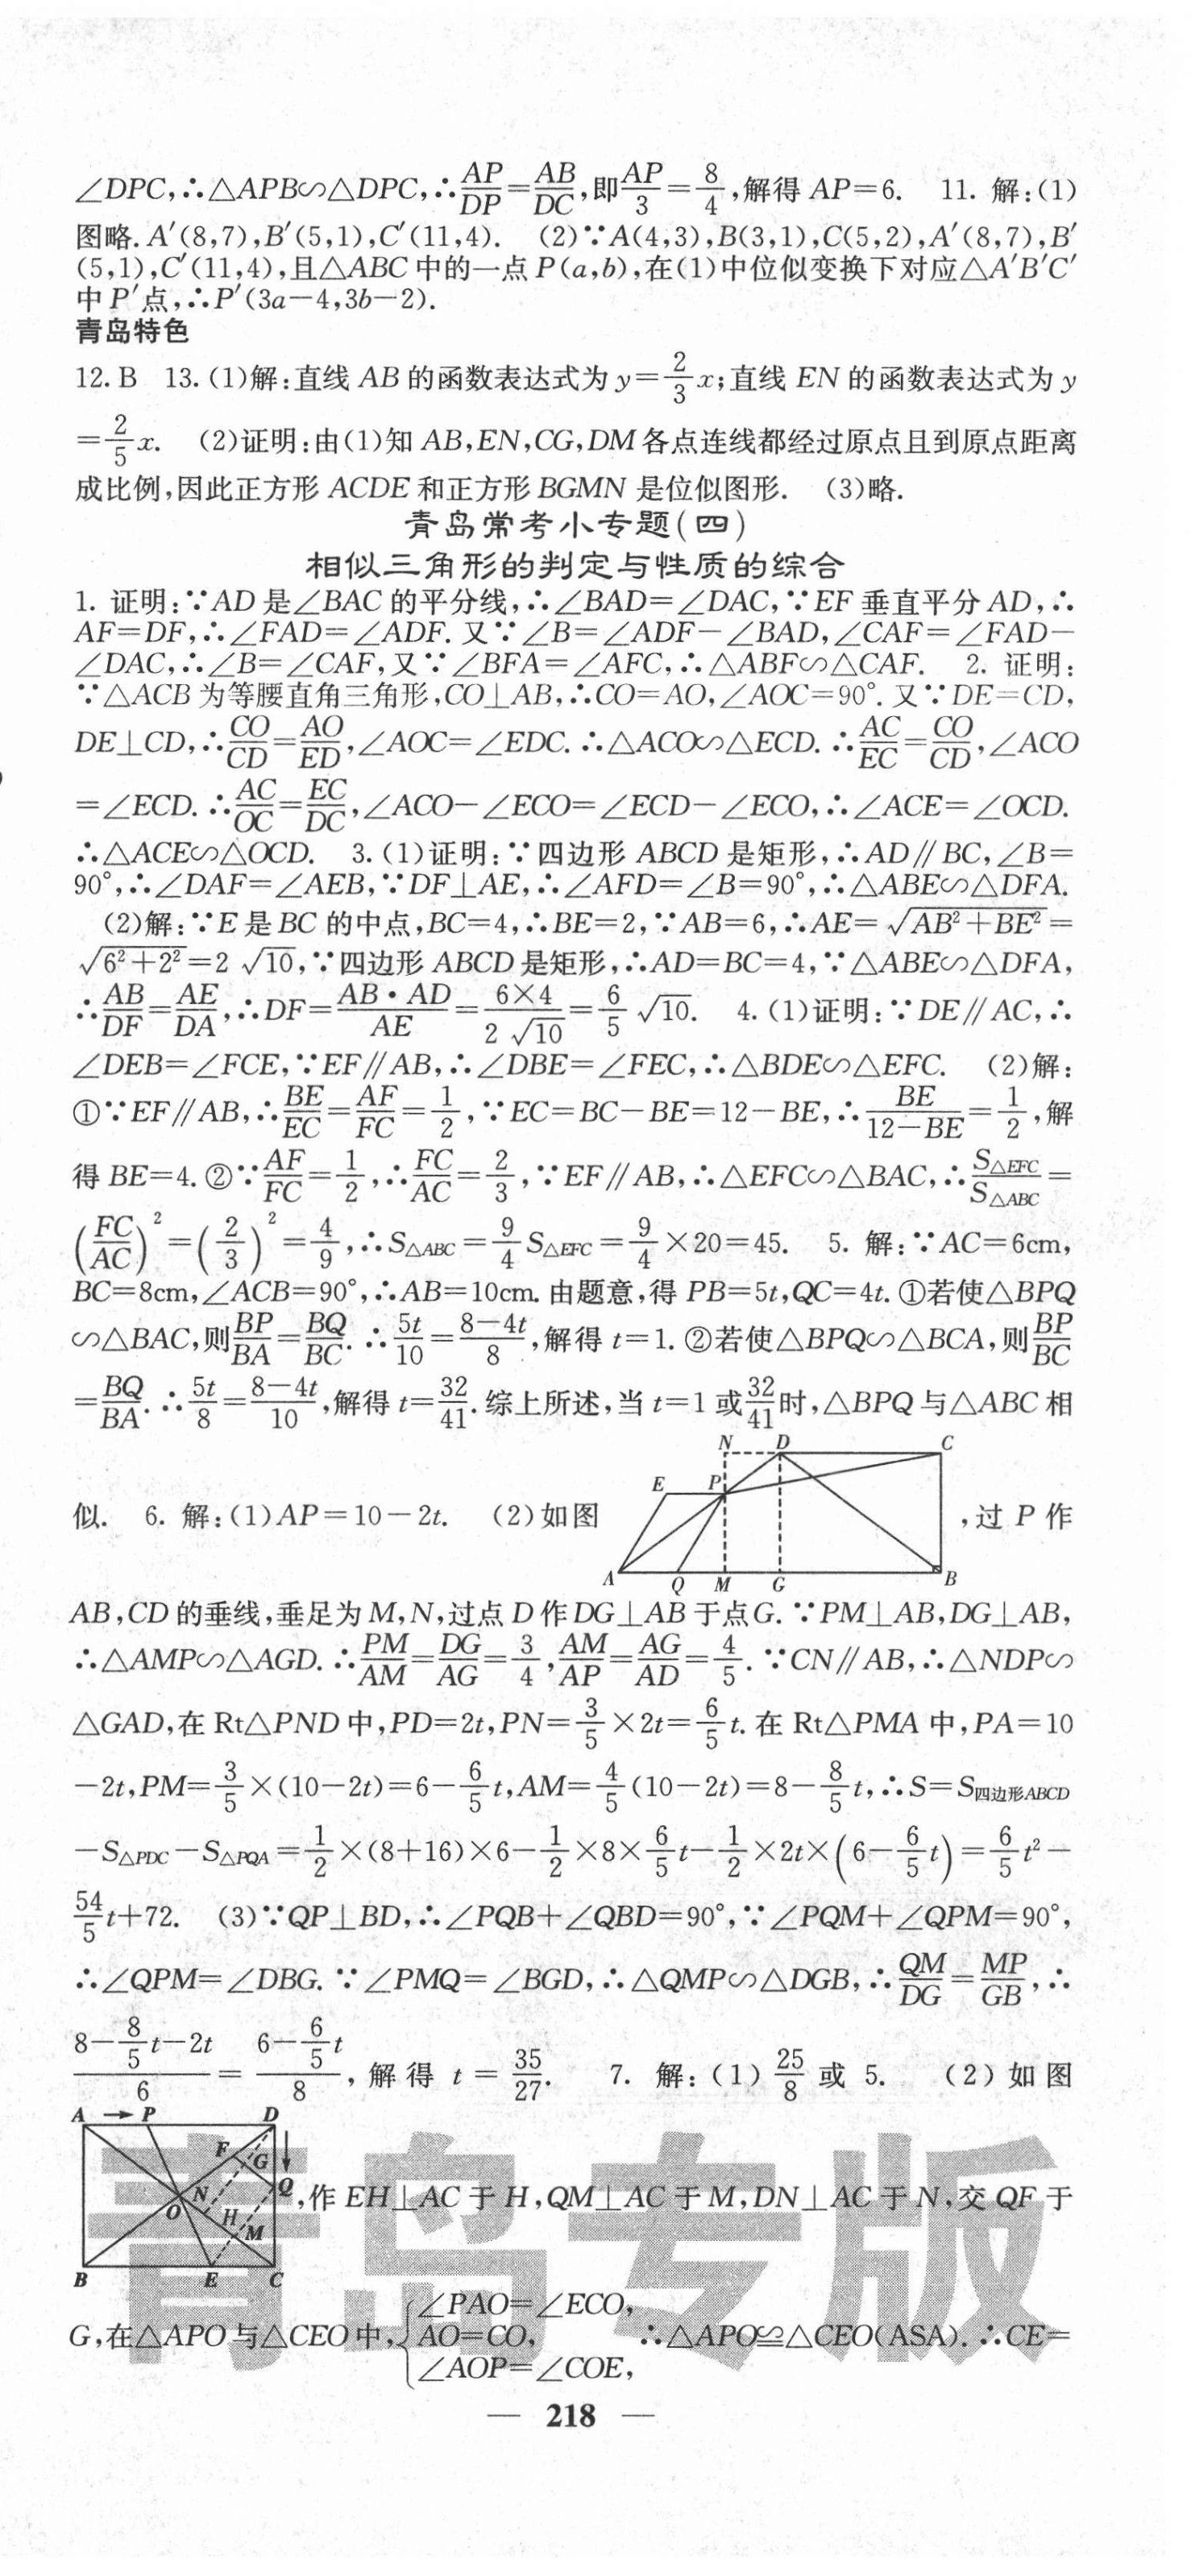 ∠DPC,∴△APB∽△DPC,∴AP/DP=AB/DC,即AP/3=8/4,解得 AP=6. 11. 解:(1)
图略. A′(8,7),B′(5,1),C′(11,4). (2)∵A(4,3),B(3,1),C(5,2),A′(8,7),B′
(5,1),C′(11,4),且△ABC 中的一点 P(a,b),在(1)中位似变换下对应△A′B′C′
中 P′点,∴P′(3a-4,3b-2).
青岛特色
12. B 13. (1)解:直线 AB 的函数表达式为 y=2/3x;直线 EN 的函数表达式为 y
=2/5x. (2)证明:由(1)知 AB,EN,CG,DM 各点连线都经过原点且到原点距离
成比例,因此正方形 ACDE 和正方形 BGMN 是位似图形. (3)略.
青岛常考小专题(四)
相似三角形的判定与性质的综合
1. 证明:∵AD 是∠BAC 的平分线,∴∠BAD=∠DAC,∵EF 垂直平分 AD,∴
AF=DF,∴∠FAD=∠ADF. 又∵∠B=∠ADF-∠BAD,∠CAF=∠FAD-
∠DAC,∴∠B=∠CAF,又∵∠BFA=∠AFC,∴△ABF∽△CAF. 2. 证明:
∵△ACB 为等腰直角三角形,CO⊥AB,∴CO=AO,∠AOC=90°. 又∵DE=CD,
DE⊥CD,∴CO/CD=AO/ED,∠AOC=∠EDC. ∴△ACO∽△ECD. ∴AC/EC=CO/CD,∠ACO
=∠ECD. ∴AC/OC=EC/DC,∠ACO-∠ECO=∠ECD-∠ECO,∴∠ACE=∠OCD.
∴△ACE∽△OCD. 3. (1)证明:∵四边形 ABCD 是矩形,∴AD∥BC,∠B=
90°,∴∠DAF=∠AEB,∵DF⊥AE,∴∠AFD=∠B=90°,∴△ABE∽△DFA.
(2)解:∵E 是 BC 的中点,BC=4,∴BE=2,∵AB=6,∴AE=√(AB²+BE²)=
√(6²+2²)=2√10,∵四边形 ABCD 是矩形,∴AD=BC=4,∵△ABE∽△DFA,
∴AB/DF=AE/DA,∴DF=(AB·AD)/AE=(6×4)/(2√10)=6/5√10. 4. (1)证明:∵DE∥AC,∴
∠DEB=∠FCE,∵EF∥AB,∴∠DBE=∠FEC,∴△BDE∽△EFC. (2)解:
①∵EF∥AB,∴BE/EC=AF/FC=1/2,∵EC=BC-BE=12-BE,∴BE/(12-BE)=1/2,解
得 BE=4. ②∵AF/FC=1/2,∴FC/AC=2/3,∵EF∥AB,∴△EFC∽△BAC,∴S△EFC/S△ABC=
(FC/AC)²=(2/3)²=4/9,∴S△ABC=9/4S△EFC=9/4×20=45. 5. 解:∵AC=6cm,
BC=8cm,∠ACB=90°,∴AB=10cm. 由题意,得 PB=5t,QC=4t. ①若使△BPQ
∽△BAC,则BP/BA=BQ/BC. ∴5t/10=(8-4t)/8,解得 t=1. ②若使△BPQ∽△BCA,则BP/BC
=BQ/BA. ∴5t/8=(8-4t)/10,解得 t=32/41. 综上所述,当 t=1 或32/41时,△BPQ 与△ABC 相
N D C
E P
似. 6. 解:(1)AP=10-2t. (2)如图 ,过 P 作
A Q M G B
AB,CD 的垂线,垂足为 M,N,过点 D 作 DG⊥AB 于点 G. ∵PM⊥AB,DG⊥AB,
∴△AMP∽△AGD. ∴PM/AM=DG/AG=3/4,AM/AP=AG/AD=4/5. ∵CN∥AB,∴△NDP∽
△GAD,在 Rt△PND 中,PD=2t,PN=3/5×2t=6/5t. 在 Rt△PMA 中,PA=10
-2t,PM=3/5×(10-2t)=6-6/5t,AM=4/5(10-2t)=8-8/5t,∴S=S四边形ABCD
-S△PDC-S△PQA=1/2×(8+16)×6-1/2×8×6/5t-1/2×2t×(6-6/5t)=6/5t²-
54/5t+72. (3)∵QP⊥BD,∴∠PQB+∠QBD=90°,∵∠PQM+∠QPM=90°,
∴∠QPM=∠DBG. ∵∠PMQ=∠BGD,∴△QMP∽△DGB,∴QM/DG=MP/GB,∴
(8-8/5t-2t)/6=(6-6/5t)/8,解得 t=35/27. 7. 解:(1)25/8或 5. (2)如图
A → P D
F G
N Q
,作 EH⊥AC 于 H,QM⊥AC 于 M,DN⊥AC 于 N,交 QF 于
O H M
B E C
青岛专版
G,在△APO 与△CEO 中,{∠PAO=∠ECO, AO=CO, ∠AOP=∠COE, ∴△APO≌△CEO(ASA). ∴CE=
— 218 —